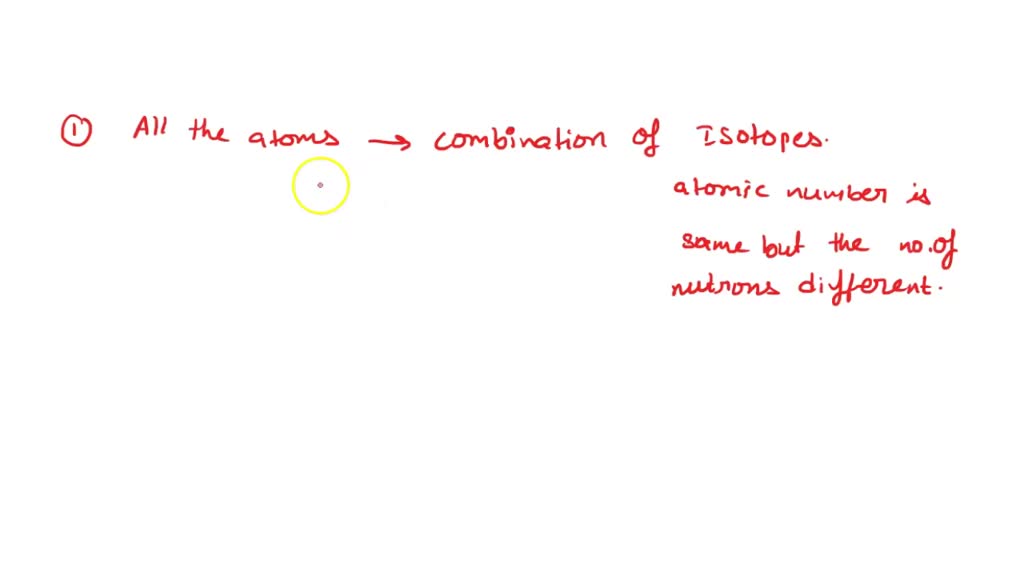 ① All the atoms → combination of Isotopes.
atomic number is
same but the no.of
nutrons different.